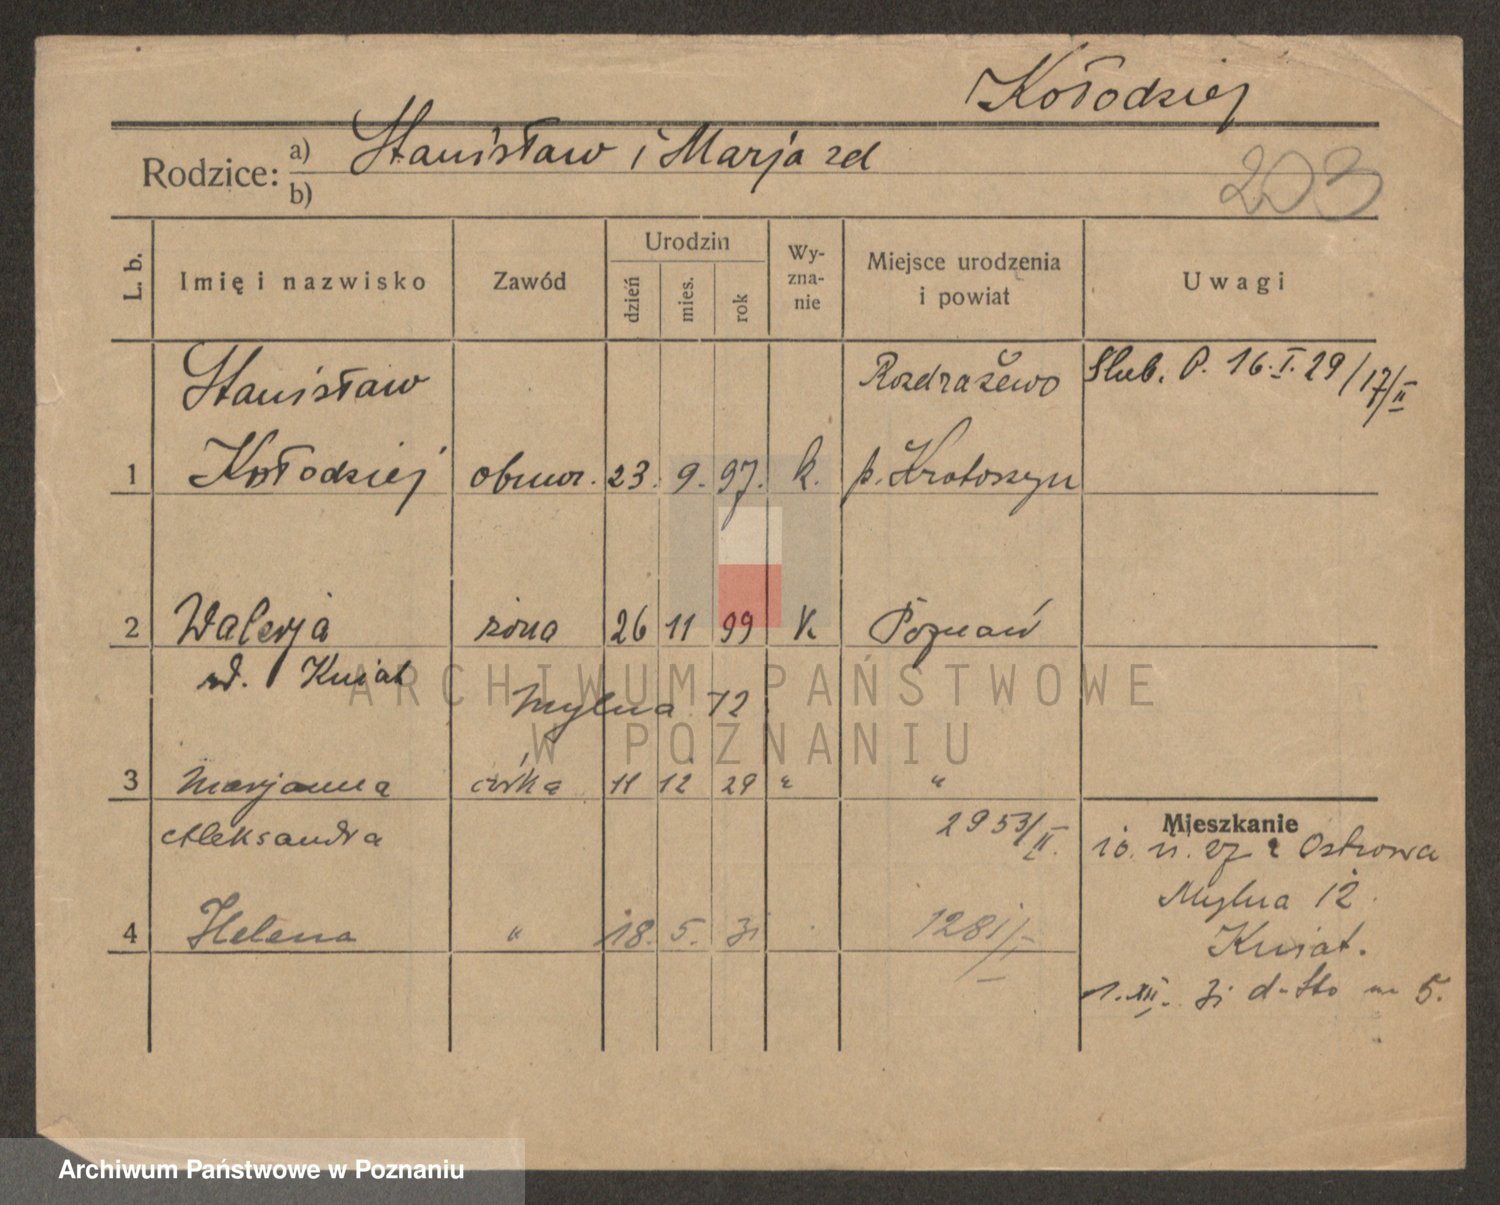 Kołodziej
Rodzice: a) Stanisław i Marja zd
b)
203
L. b. Imię i nazwisko Zawód Urodzin dzień mies. rok Wy-zna-nie Miejsce urodzenia i powiat Uwagi
Stanisław Rozdrażewo Slub. P. 16.I.29/17/II
1 Kołodziej obuw. 23. 9. 97. k. p. Krotoszyn
2 Walerja żona 26 11 99 k. Poznań
zd. Kwiat
Mylna 12
3 Marjanna córka 11 12 29 " "
Aleksandra 2953/II.
Mieszkanie
10. 11. 27 z Ostrowa
Mylna 12.
4 Helena " 18. 5. 31 1281/I
Kwiat.
1. XII. 31 d-tto m 5.
ARCHIWUM PAŃSTWOWE
W POZNANIU
Archiwum Państwowe w Poznaniu